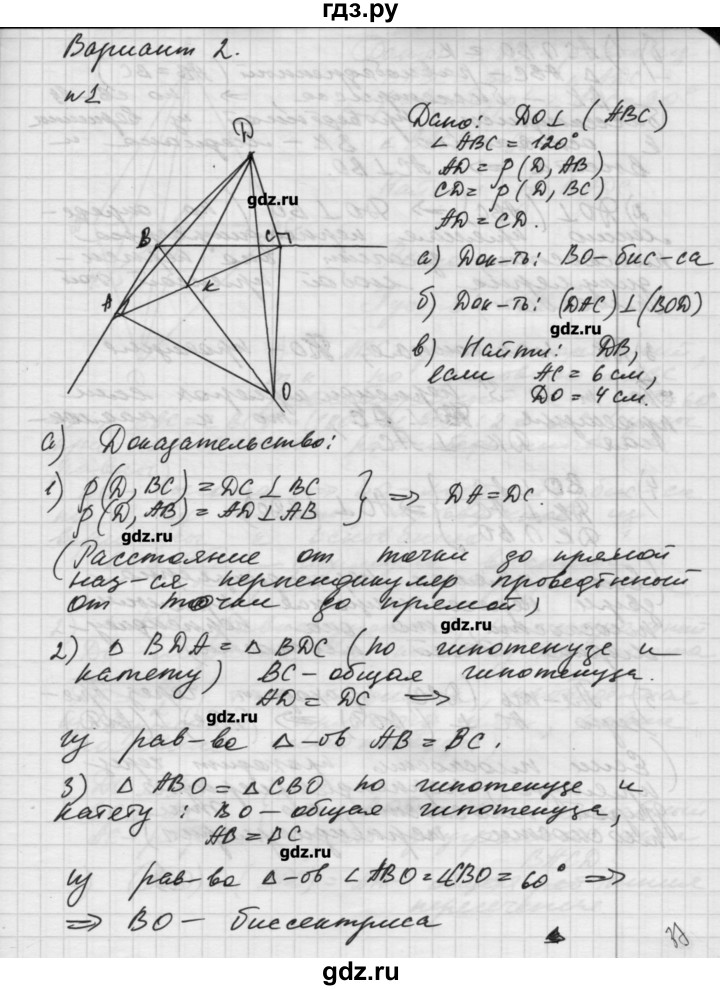 гдз.ру
Вариант 2.
№1
Дано: DO⊥(ABC)
∠ABC = 120°
AD = ρ(D, AB)
CD = ρ(D, BC)
AD = CD.
а) Док-ть: BO-бис-са
б) Док-ть: (DAC)⊥(BOD)
gdz.ru
в) Найти: DB,
если AC = 6 см,
DO = 4 см.
D
gdz.ru
B
C
A
K
O
а) Доказательство:
1) ρ(D, BC) = DC ⊥ BC
ρ(D, AB) = AD ⊥ AB } => DA = DC.
gdz.ru
(Расстояние от точки до прямой
наз-ся перпендикуляр проведённый
от точки до прямой)
gdz.ru
2) △ BDA = △ BDC (по гипотенузе и
катету) BC-общая гипотенуза.
AD = DC =>
gdz.ru
из рав-ва △-ов AB = BC.
3) △ ABO = △ CBO по гипотенузе и
катету: BO-общая гипотенуза,
AB = BC
gdz.ru
из рав-ва △-ов ∠ABO = ∠CBO = 60° =>
=> BO - биссектриса
37
gdz.ru